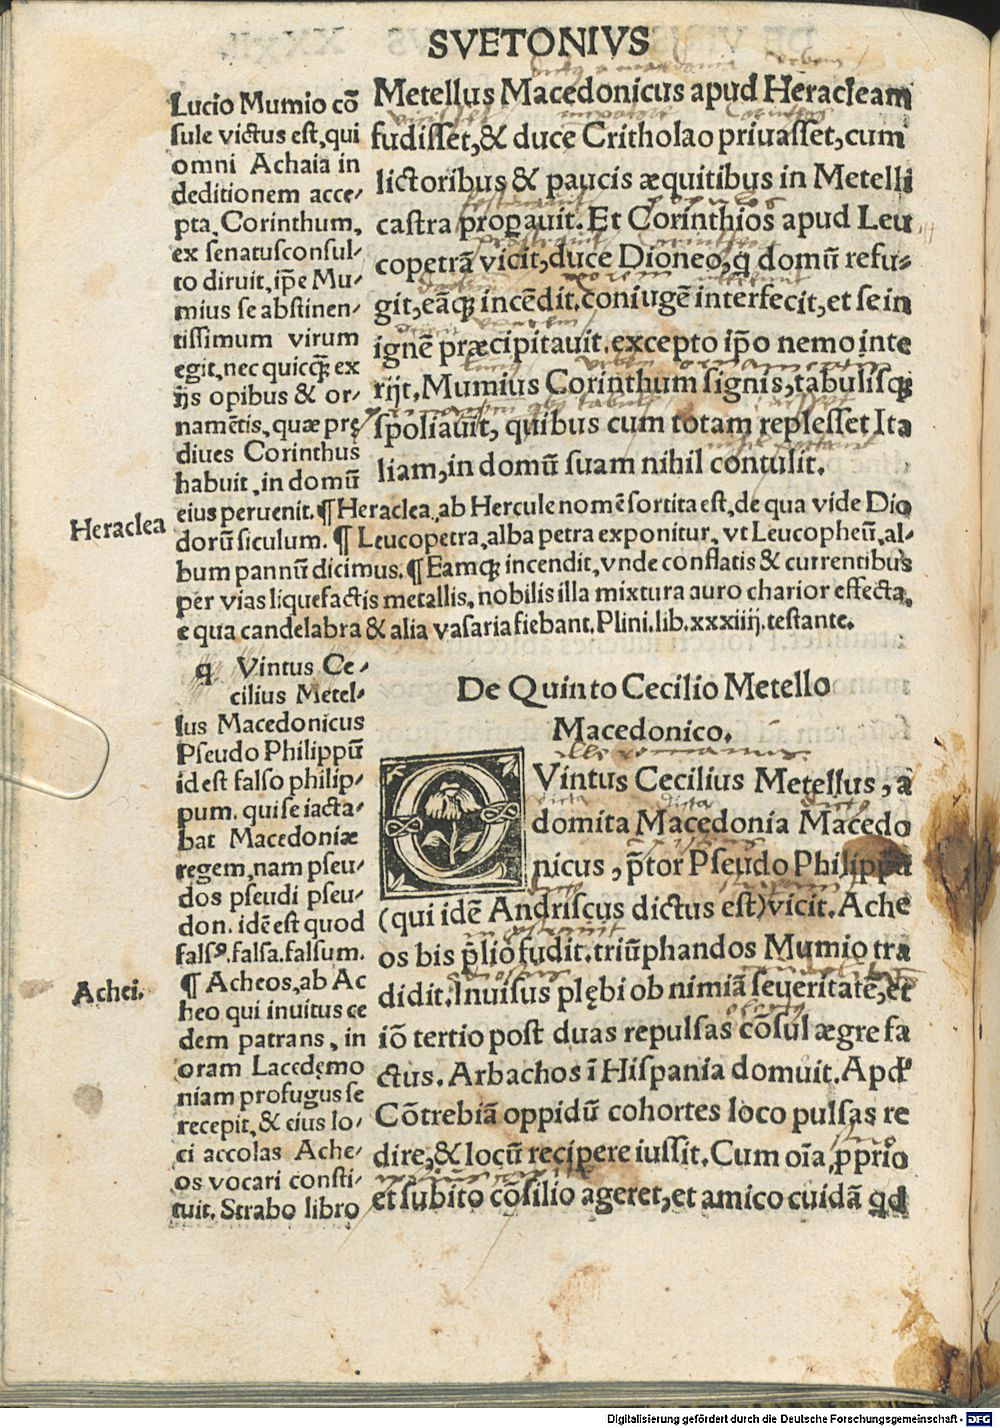 SVETONIVS
Metellus Macedonicus apud Heracleam
fudisset, & duce Critholao priuasset, cum
lictoribus & paucis æquitibus in Metelli
castra properauit. Et Corinthios apud Leu
copetrā vicit, duce Dioneo, q̄ domū refu-
git, eāq; incēdit. coniugē interfecit, et se in
ignē præcipitauit. excepto ip̄o nemo inte
rijt. Mumius Corinthum signis, tabulisq;
spoliauit, quibus cum totam replesset Ita
liam, in domū suam nihil contulit.
Lucio Mumio cō
sule victus est, qui
omni Achaia in
deditionem acce-
pta, Corinthum,
ex senatusconsul-
to diruit, ip̄e Mu-
mius se abstinen-
tissimum virum
egit, nec quicq̄; ex
ijs opibus & or-
namētis, quæ prę
diues Corinthus
habuit, in domū
eius peruenit. ¶ Heraclea, ab Hercule nomē sortita est, de qua vide Dio
Heraclea
dorū siculum. ¶ Leucopetra, alba petra exponitur, vt Leucopheū, al-
bum pannū dicimus. ¶ Eamq; incendit, vnde conflatis & currentibus
per vias liquefactis metallis, nobilis illa mixtura auro charior effecta,
e qua candelabra & alia vasaria fiebant. Plini. lib. xxxiiij. testante.
De Quinto Cecilio Metello
Macedonico.
Vintus Cecilius Metellus, a
domita Macedonia Macedo
nicus, p̄tor Pseudo Philippū
(qui idē Andriscus dictus est) vicit. Ache
os bis p̄lio fudit. triūphandos Mumio tra
didit. Inuisus plębi ob nimiā seueritatē, et
iō tertio post duas repulsas cōsul ægre fa
ctus. Arbachos ī Hispania domuit. Apd'
Cōtrebiā oppidū cohortes loco pulsas re
dire, & locū recipere iussit. Cum oīa ꝓprio
et subito cōsilio ageret, et amico cuidā qd
q Vintus Ce-
cilius Metel-
lus Macedonicus
Pseudo Philippū
id est falso philip-
pum. qui se iacta-
bat Macedoniæ
regem, nam pseu-
dos pseudi pseu-
don. idē est quod
falsꝰ. falsa. falsum.
¶ Acheos, ab Ac
Achei.
heo qui inuitus ce
dem patrans, in
oram Lacedęmo
niam profugus se
recepit, & eius lo-
ci accolas Ache-
os vocari consti-
tuit. Strabo libro
Digitalisierung gefördert durch die Deutsche Forschungsgemeinschaft - DFG